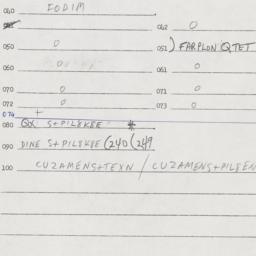 040 IODIM
042 0
050 0
051 ) FARPLON QTET
060
061 0
070 0
071 0
072 0
073 0
074 +
080 QX S+PILEKEE #
090 DINE S+PILEKEE (240 (249
100 CUZAMENS+TEXN / CUZAMENS+PILEEN